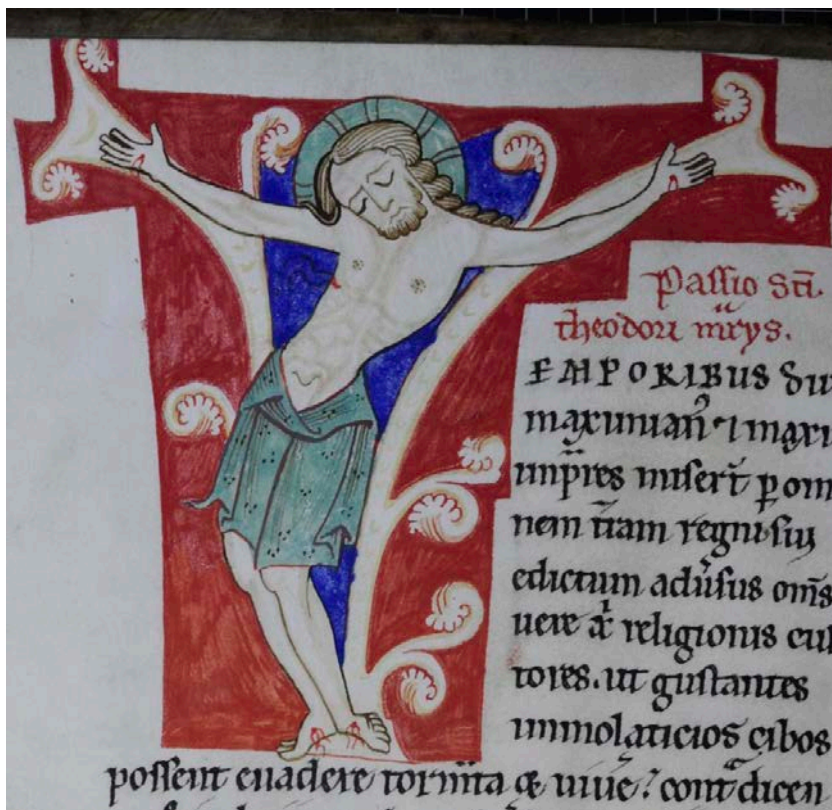 Passio sc̄i
theodori mr̄ys.
EMPORIBUS su
maximian᷒ ⁊ maxi
imp̄res miser̄t ꝑ om
nem t̄ram regni sui
edictum adu̓sus om̄s
uere x̄ religionis cul
tores. ut gustantes
immolaticios cibos
possent euadere torm̄ta & uiue? cont dicen